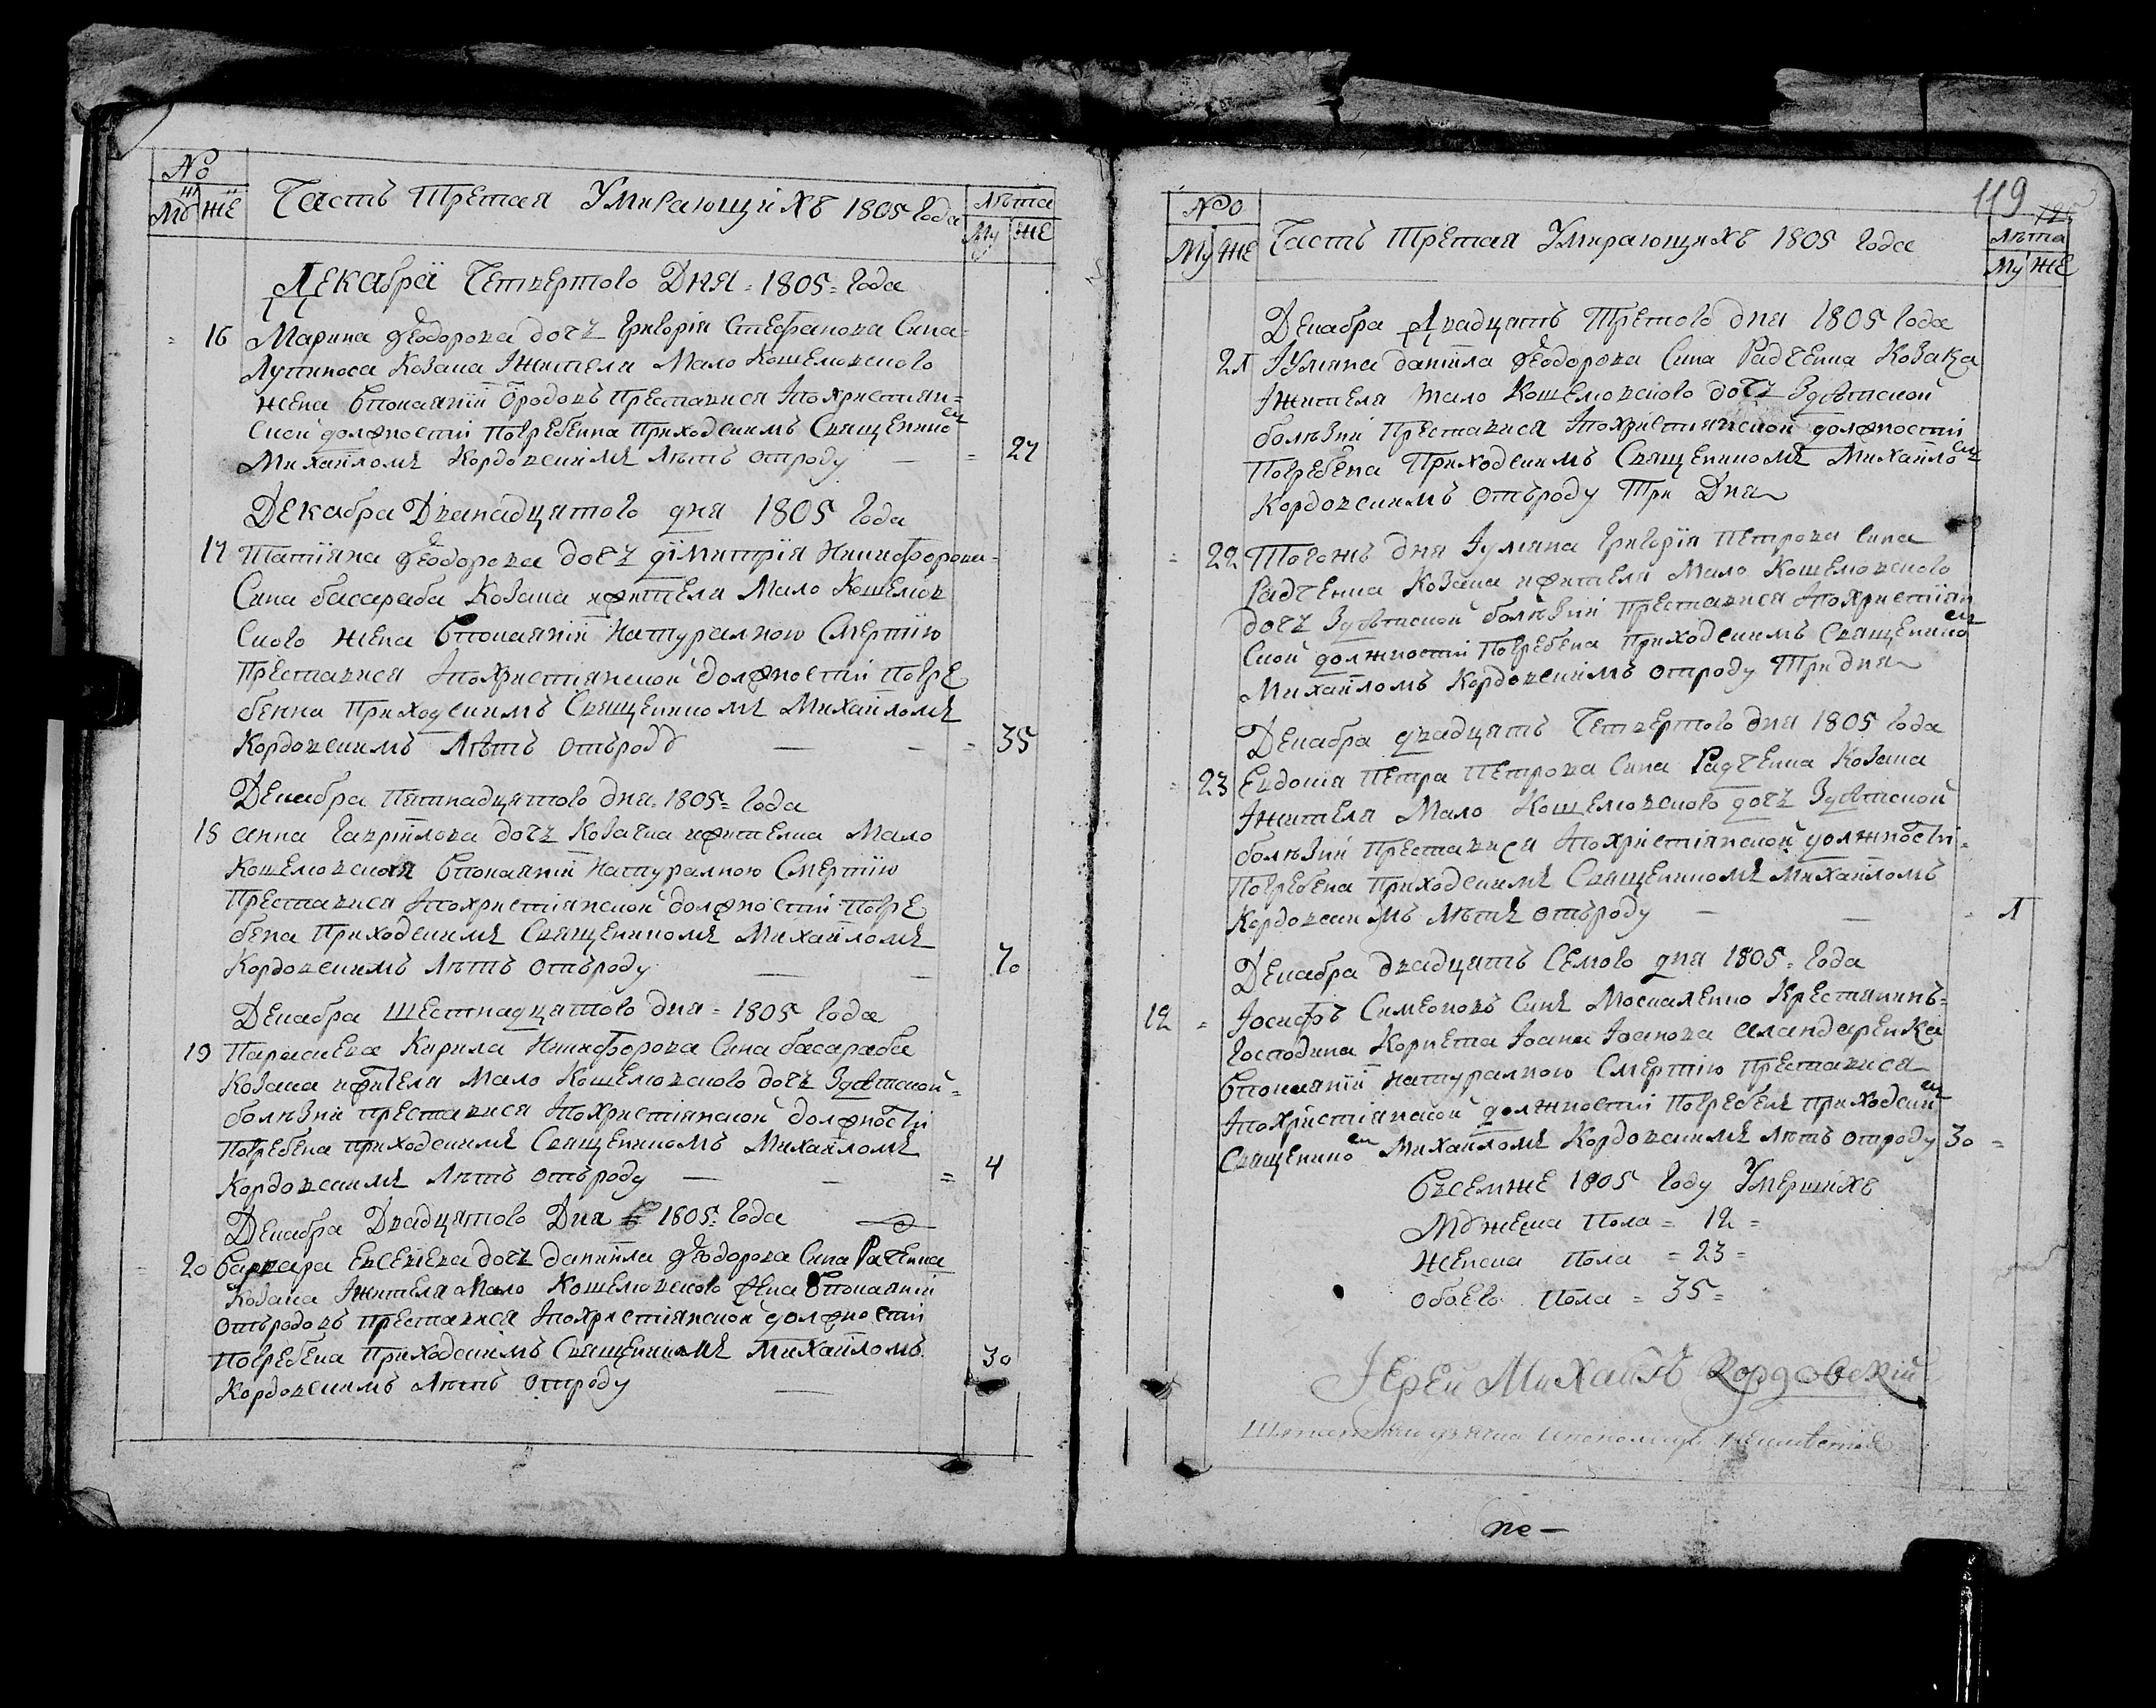 №
Мᲂ же Часть Третая Умирающихъ 1805 Года Лѣта
Му Же
Декабрй Четвертого Дня = 1805 = Года
= 16 Марина Феодорова дочъ Григорїя Стефанова Сина
Лутиноса Козака Ѣжителя Мало Кошелювского
жена Впокаянїи Ѿродовъ Преставися Ипохристиян=
ской должностїи Погребенна Приходскимъ Священико
Михайломъ Кордовскимъ Лѣтъ отроду — = 27
Декабра Дванадцятого дня 1805 Года
17 Татїяна Феодорова дочъ дїмитрїя Никифорова
Сина басараба Козака ижителя Мало Кошелюв
ского жена Впокаянїи Натуралною Смертїю
Преставися Ипохристїянской должностїи Погре
бенна Приходскимъ Священикомъ Михайломъ
Кордовскимъ Лѣтъ отъроду — — = 35
Декабра Пятнадцятого дня = 1805 = Года
18 Анна Гаврїилова дочъ Козачка ижителка Мало
Кошелювская Впокаянїи Натуралною Смертїю
Преставися Ипохристїянской должностїи Погре
бена Приходскимъ Священикомъ Михайломъ
Кордовскимъ Лѣтъ отъроду — — 70
Декабра Шестнадцятого дня = 1805 Года
19 Параскева Кирила Никифорова Сина басараба
Козака ижителя Мало Кошелювского дочъ Здѣтской =
болѣзни преставися Ипохристїянской должности
Погребена приходскимъ Священикомъ Михайломъ
Кордовскимъ Лѣтъ отъроду — — = 4
Декабра Двадцятого Дня 1805 = Года
= 20 Варвара Евсеѣева дочъ данїила Феодорова Сина Раченка
Козака Ѣжителя Мало Кошелювского жена Впокаянїи
отъродовъ преставися Ипохристїянской должностїи
погребена Приходскимъ Священикомъ Михайломъ
Кордовскимъ Лѣтъ отроду — 30
119
№
Му Же Часть Третая Умирающихъ 1805 Года Лѣта
Му Же
Декабра Двадцять Третого дня 1805 Года
21 Іуляна данїила Феодорова Сина Радченка Козака
Ѣжителя Мало Кошелювского дочъ Здѣтской
болѣзни Преставися Ипохристїянской должностїи
Погребена Приходскимъ Священикомъ Михайло
Кордовскимъ отъроду Три Дня
= 22 Тогожъ дня Іуляна Григорїя Петрова Сина
Радченка Козака ижителя Мало Кошелювского
дочъ Здѣтской болѣзни Преставися Ипохристїян
ской должностїи Погребена Приходскимъ Священико
Михайломъ Кордовскимъ отроду Три дня
Декабра двадцять Четвертого дня 1805 Года
= 23 Евдокїя Петра Петрова Сина Радченка Козака
Ѣжителя Мало Кошелювского дочъ Здѣтской
болѣзни Преставися Ипохристїянской должности =
Погребена Приходскимъ Священикомъ Михайломъ
Кордовскимъ Лѣтъ отъроду — — = 1
Декабра двадцять Семого дня 1805 = Года
12 = Іосифъ Симеоновъ Синъ Москаленко Крестянинъ =
Господина Корнета Іоана Іоанова Аландаренка
Впокаянїи Натуралною Смертїю Преставися
Ипохрїстїянской должностїи Погребенъ приходски
Священико Михайломъ Кордовскимъ лѣтъ отроду 30 =
Всемже 1805 Году Умершихъ
Мᲂжеска Пола = 12 =
Женска Пола = 23 =
Обоего Пола = 35 =
Іерей Михаилъ Кордовскїй